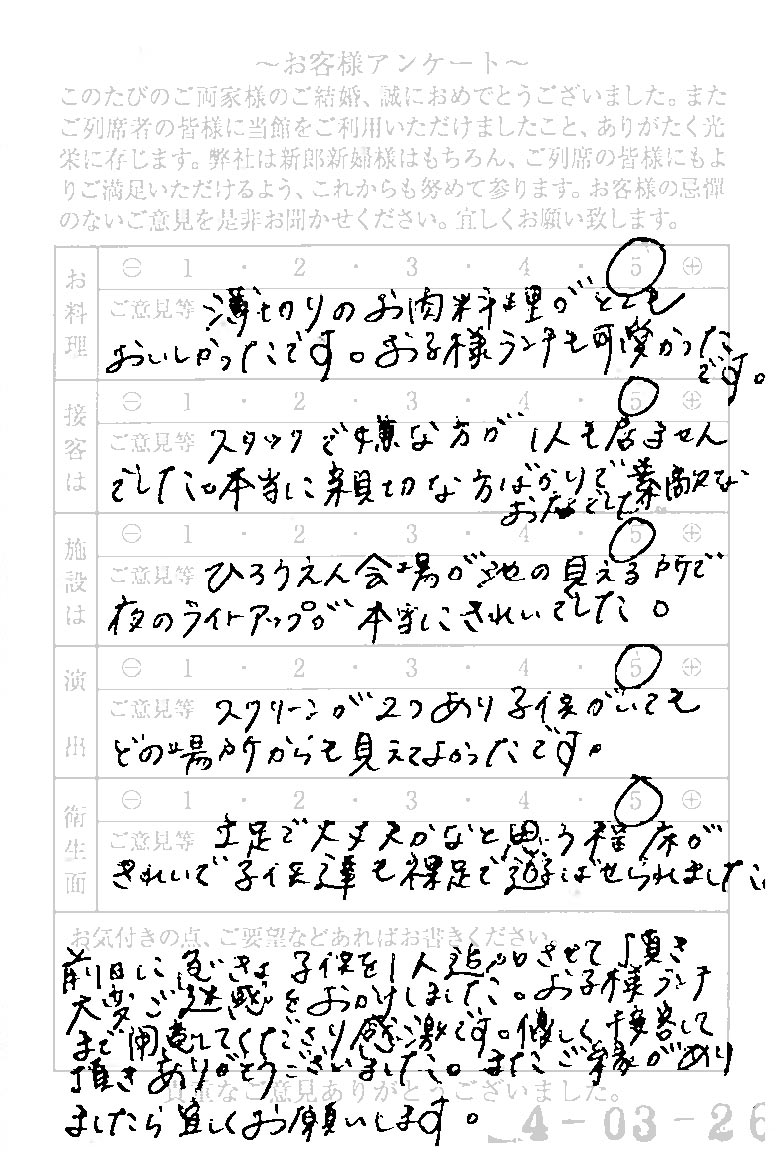 ～お客様アンケート～
このたびのご両家様のご結婚、誠におめでとうございました。また
ご列席者の皆様に当館をご利用いただけましたこと、ありがたく光
栄に存じます。弊社は新郎新婦様はもちろん、ご列席の皆様にもよ
りご満足いただけるよう、これからも努めて参ります。お客様の忌憚
のないご意見を是非お聞かせください。宜しくお願い致します。
お料理
⊖ 1 ・ 2 ・ 3 ・ 4 ・ 5 ⊕
ご意見等 薄切りのお肉料理がとても
おいしかったです。お子様ランチも可愛かった
です。
接客は
⊖ 1 ・ 2 ・ 3 ・ 4 ・ 5 ⊕
ご意見等 スタッフで嫌な方が1人も居ません
でした。本当に親切な方ばかりで素敵な
お方でした
施設は
⊖ 1 ・ 2 ・ 3 ・ 4 ・ 5 ⊕
ご意見等 ひろうえん会場が池の見える所で
夜のライトアップが本当にきれいでした。
演出
⊖ 1 ・ 2 ・ 3 ・ 4 ・ 5 ⊕
ご意見等 スクリーンが2つあり子供がいても
どの場所からも見えてよかったです。
衛生面
⊖ 1 ・ 2 ・ 3 ・ 4 ・ 5 ⊕
ご意見等 土足で大丈夫かなと思う程床が
きれいで子供達も裸足で遊ばせられました。
お気付きの点、ご要望などあればお書きください。
前日に急きょ子供を1人追加させて頂き
大変ご迷惑をおかけしました。お子様ランチ
まで用意してくださり感激です。優しく接客して
頂きありがとうございました。またご縁があり
貴重なご意見ありがとうございました。
ましたら宜しくお願いします。
4-03-26